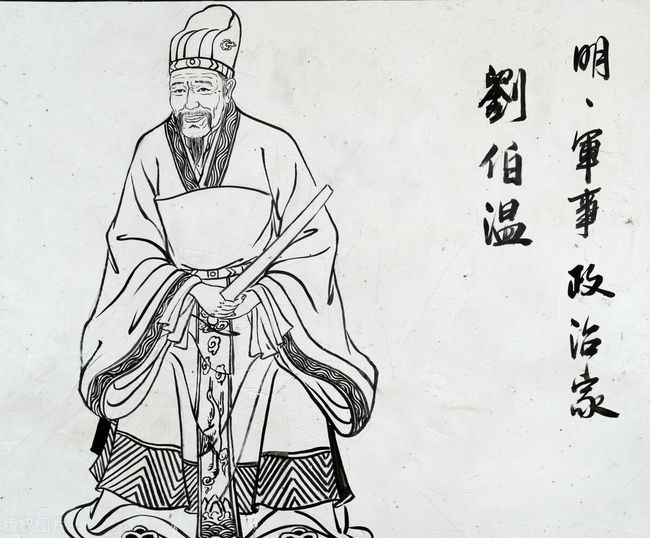 明、軍事、政治家
劉伯温
版权图片